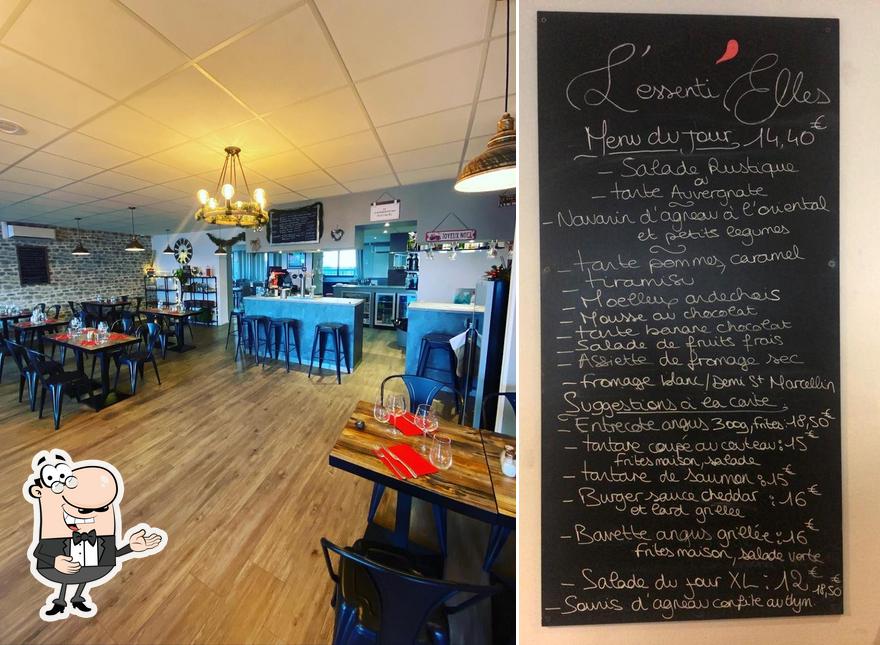 JOYEUX NOEL
L'essenti'Elles
Menu du jour 14,40€
- Salade Rustique
ou
- tarte Auvergnate
- Navarin d'agneau à l'oriental
et petits legumes
- tarte pommes, caramel
- tiramisu
- Moelleux ardechois
- Mousse au chocolat
- tarte banane chocolat
- Salade de fruits frais
- Assiette de fromage sec
- fromage blanc/Demi St Marcellin
Suggestions à la carte
- Entrecote angus 300g, frites: 18,50€
- tartare coupé au couteau: 15€
frites maison, salade
- tartare de saumon: 15€
- Burger sauce cheddar : 16€
et lard grillée
- Bavette angus grillée: 16€
frites maison, salade verte
- Salade du jour XL : 12€
18,50€
- Souris d'agneau confite au thym.